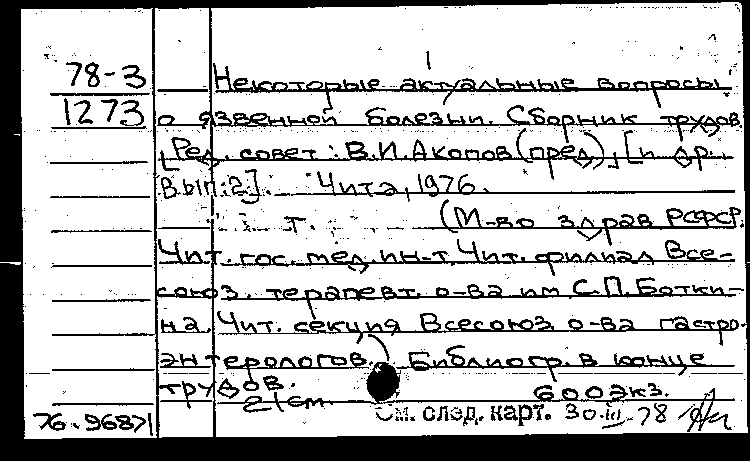 78-3 Некоторые актуальные вопросы
1273 о язвенной болезни. Сборник трудов
[Ред. совет: В.И. Акопов (пред), [и др.,
Вып. 2]. Чита, 1976.
т. (М-во здрав РСФСР.
Чит. гос. мед. ин-т. Чит. филиал Все-
союз. терапевт. о-ва им С.П.Ботки-
на. Чит. секция Всесоюз. о-ва гастро-
энтерологов.) Библиогр. в конце
трудов.
21 см. 600 экз.
76.96871 См. след. карт. 30.III.78